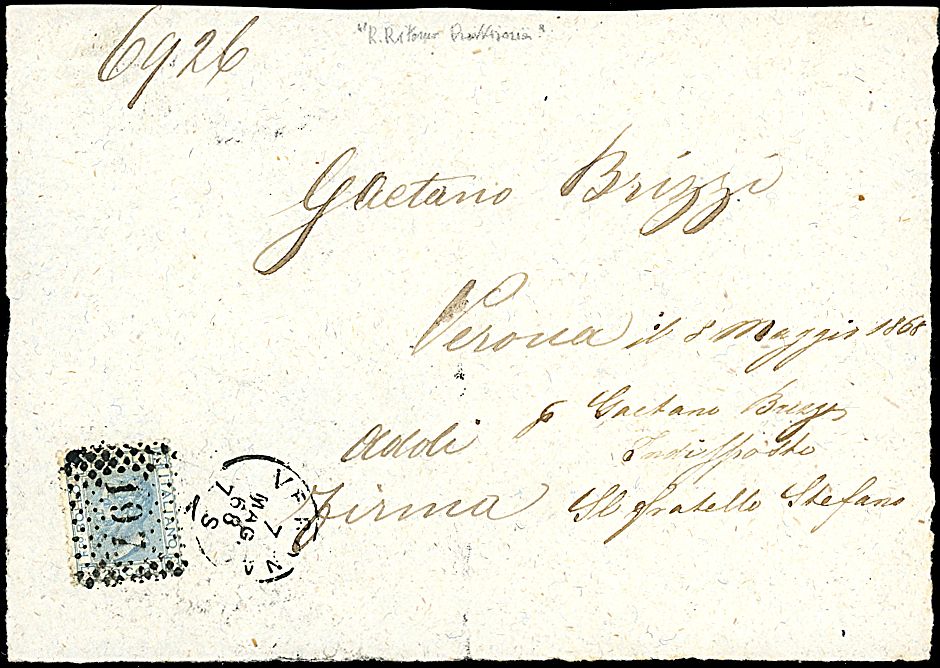 "R. Ritorno
6926
Gaetano Brizzi
Verona il 8 Maggio 1868
Addi p Gaetano Brizzi
Indisposto
Firma Il fratello Stefano
VERONA
7 MAG. 68
7 S
197
ITALIANO